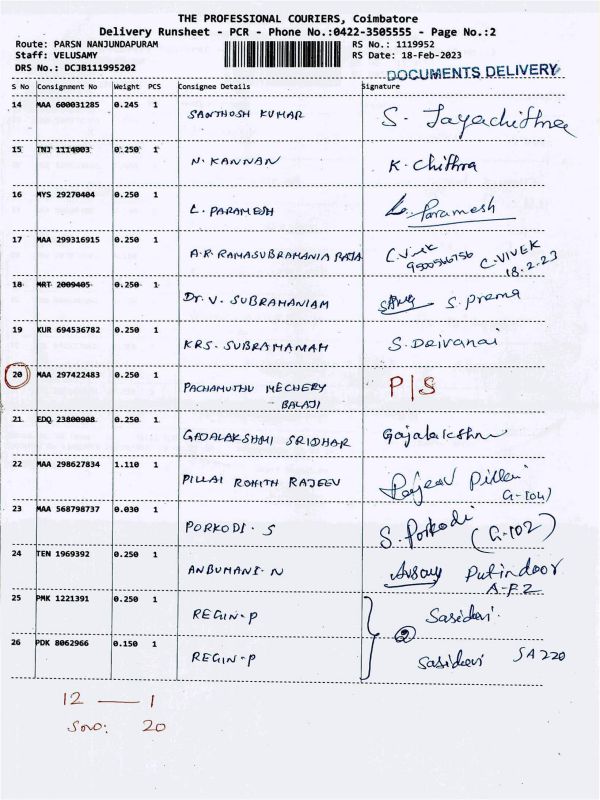 THE PROFESSIONAL COURIERS, Coimbatore
Delivery Runsheet - PCR - Phone No.:0422-3505555 - Page No.:2
Route: PARSN NANJUNDAPURAM RS No.: 1119952
Staff: VELUSAMY RS Date: 18-Feb-2023
DRS No.: DCJB111995202
DOCUMENTS DELIVERY
S No Consignment No Weight PCS Consignee Details Signature
14 MAA 600031285 0.245 1 SANTHOSH KUMAR S. Jayachithra
15 TNJ 1114003 0.250 1 N. KANNAN K. Chithra
16 MYS 29270404 0.250 1 L. PARAMESH L. Paramesh
17 MAA 299316915 0.250 1 A.R. RAMASUBRAMANIA RAJA C. Vivek
C. VIVEK
18.2.23
18 MRT 2009405 0.250 1 Dr. V. SUBRAMANIAM S. Prema
19 KUR 694536782 0.250 1 KRS. SUBRAMANAM S. Deivanai
20 MAA 297422483 0.250 1 PACHAMUTHU MECHERY P/S
BALAJI
21 EDQ 23800908 0.250 1 GAJALAKSHMI SRIDHAR Gajalakshmi
22 MAA 298627834 1.110 1 PILLAI ROHITH RAJEEV Rajeev Pillai
G-104)
23 MAA 568798737 0.030 1 PORKODI. S S. Porkodi (G-102)
24 TEN 1969392 0.250 1 ANBUMANI. N
A-F2
25 PMK 1221391 0.250 1 REGIN-P Sasidevi.
2
26 PDK 8062966 0.150 1 REGIN-P Sasidevi SA220
12 — 1
Sno: 20